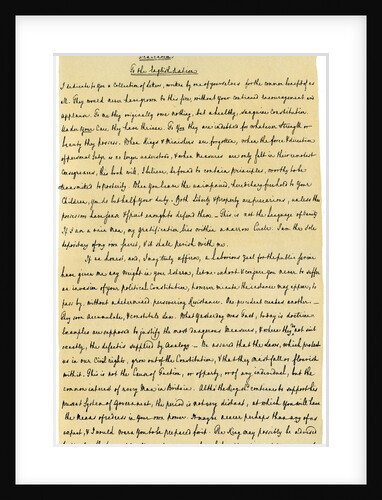 Dedication
To the English Nation
I dedicate to You a collection of letters, written by one of yourselves for the common benefit of us
all. They would never have grown to this size, without Your continued encouragement and
applause. To me they originally owe nothing, but a healthy, sanguine Constitution
Under Your Care they have thriven. To You they are indebted for whatever strength or
beauty they possess. When Kings & Ministers are forgotten, when the force & direction
of personal Satyr is no longer understood, & when measures are only felt in their remotest
consequences, this book will, I believe, be found to contain principles, worthy to be
transmitted to posterity. When You leave the unimpaired, hereditary freehold to Your
Children, You do but half Your duty. Both Liberty & Property are precarious, unless the
possessors have sense & spirit enough to defend them – This is not the language of Vanity
If I am a vain Man, my gratification lies within a narrow Circle. I am the sole
depository of my own secret, & it shall perish with me.
If an honest, and, I may truly affirm, a laborious zeal for the public service
has given me any weight in Your esteem, let me exhort & conjure You never to suffer
an invasion of Your political Constitution, however minute the instance may appear, to
pass by, without a determined, persevering Resistance. One precedent creates another –
They soon accumulate, & constitute Law. What Yesterday was Fact, today is doctrine –
Examples are supposed to justify the most dangerous Measures, & where they do not suit
exactly, the defect is supplied by Analogy – Be assured that the Laws, which protect
us in our Civil rights, grow out of the Constitution, & that they must fall or flourish
with it. This is not the Cause of Faction, or of party, or of any individual, but the
common interest of every Man in Britain. Altho the King shd continue to support his
present System of Government, the period is not very distant, at which You will have
the means of redress in Your own power. It may be nearer perhaps than any of us
expect, & I would warn You to be prepared for it. The King may possibly be advised